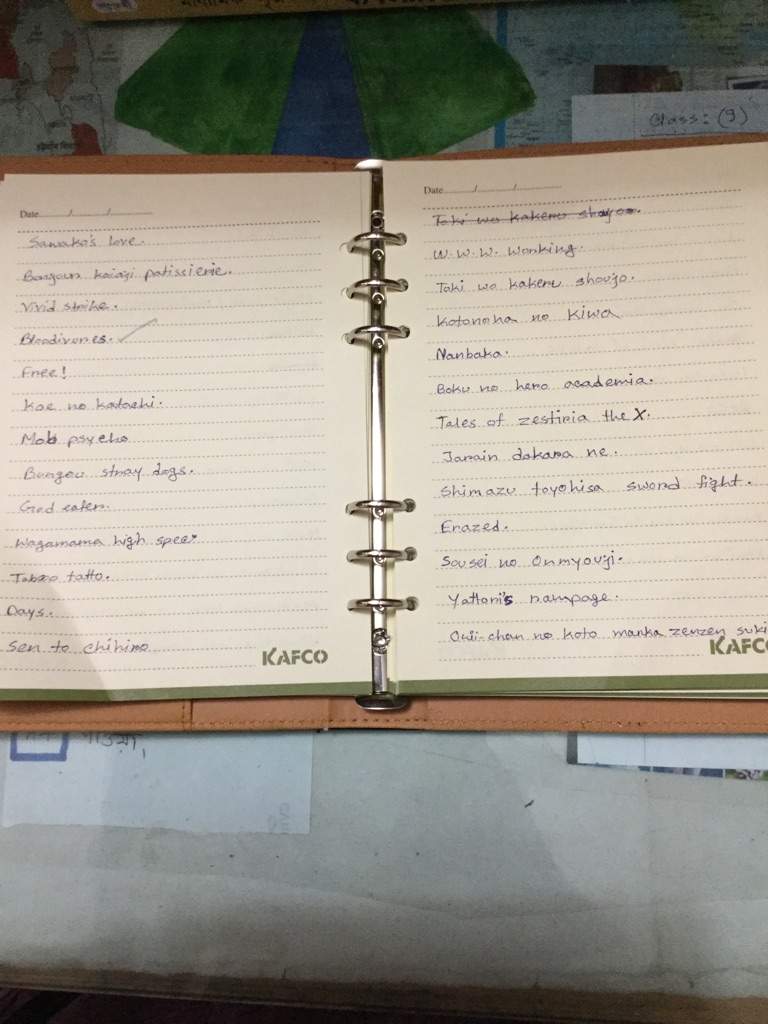 Class: (9)
Date ......../......../................
Sawako's love.
Bongoun koiaji patisserie.
Vivid strike.
Bloodivores.
Free!
Koe no katachi.
Mob psycho
Bungou stray dogs.
God eater.
Wagamama high spec.
Taboo tatto.
Days.
Sen to chihiro
KAFCO
Date ......../......../................
Toki wo kakeru shoyo.
W.W.W. Working.
Toki wo kakeru shoujo.
Kotonoha no Kiwa
Nanbaka.
Boku no hero academia.
Tales of zestiria the X.
Janain dakara ne.
Shimazu toyohisa sword fight.
Erazed.
Sousei no Onmyouji.
Yattori's rampage.
Onii-chan no koto manka zenzen suki
KAFCO